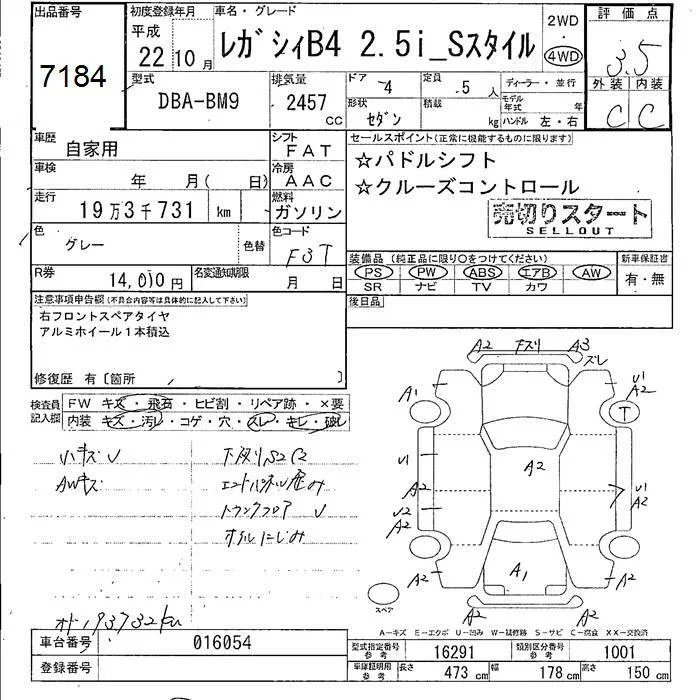 出品番号
7184
初度登録年月
平成
22 10 月
車名・グレード
レガシィB4 2.5i_Sスタイル
2WD
・
4WD
評価点
3.5
外装 内装
C C
型式
DBA-BM9
排気量
2457 CC
ドア -4
形状 セダン
定員 .5 人
積載 kg
ディーラー・並行
モデル年式 年
ハンドル 左・右
車歴
自家用
シフト
FAT
車検
年 月( 日)
冷房
AAC
走行
19万3千731 km
燃料
ガソリン
色
グレー
色替
色コード
F3T
R券
14,010 円
名変通知期限
月 日
セールスポイント(正常に機能するものに限ります)
☆パドルシフト
☆クルーズコントロール
売切りスタート
SELLOUT
装備品(純正品に限り○をつけてください)
PS PW ABS エアB AW
SR ナビ TV カワ
新車保証書
有・無
後日品
注意事項申告欄(不具合内容等は具体的に記入して下さい)
右フロントスペアタイヤ
アルミホイール1本積込
修復歴 有〔箇所 〕
検査員記入欄
FW キズ・飛石・ヒビ割・リペア跡・×要
内装 キズ・汚レ・コゲ・穴・スレ・キレ・破レ
小キズ U
AWキズ
下廻りS2C2
トランクフロア U
オド193732km
A2 Fスリ A3
ズレ
A1
U1
A2
T
U1
A2
U2
A2
A2
U1
A2
A1
A2
A2
A2
A2
スペア
A-キズ E-エクボ U-凹み W-補修跡 S-サビ C-腐食 XX-交換済
車台番号
016054
登録番号
型式指定番号 参考
16291
類別区分番号 参考
1001
車庫証明用 参考
長さ 473 cm 幅 178 cm 高さ 150 cm